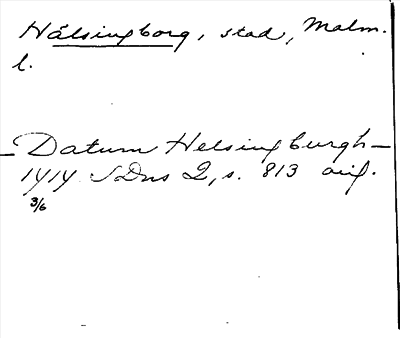 Hälsingborg, stad, Malm.
l.
Datum Helsingburgh
1414 SDns 2, s. 813 orig.
3/6